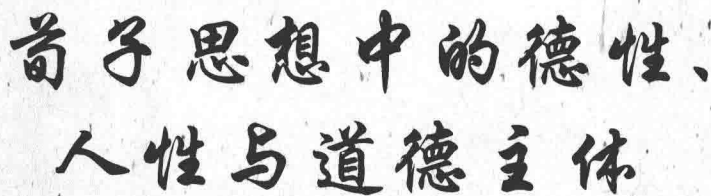 荀子思想中的德性、
人性与道德主体